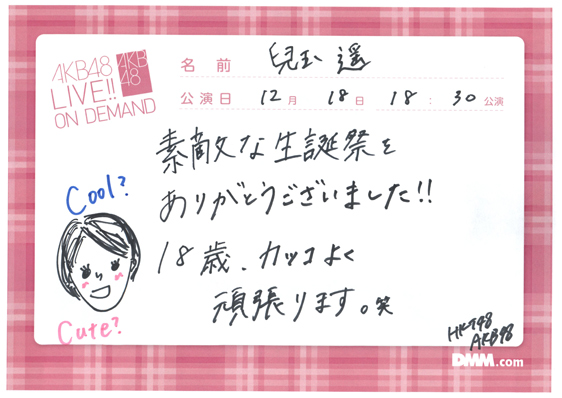 AKB48
LIVE!!
ON DEMAND
AKB
48
名前 兒玉 遥
公演日 12月 18日 18:30公演
素敵な生誕祭を
ありがとうございました!!
18歳、カッコよく
頑張ります。笑
Cool?
Cute?
HKT48
AKB48
DMM.com